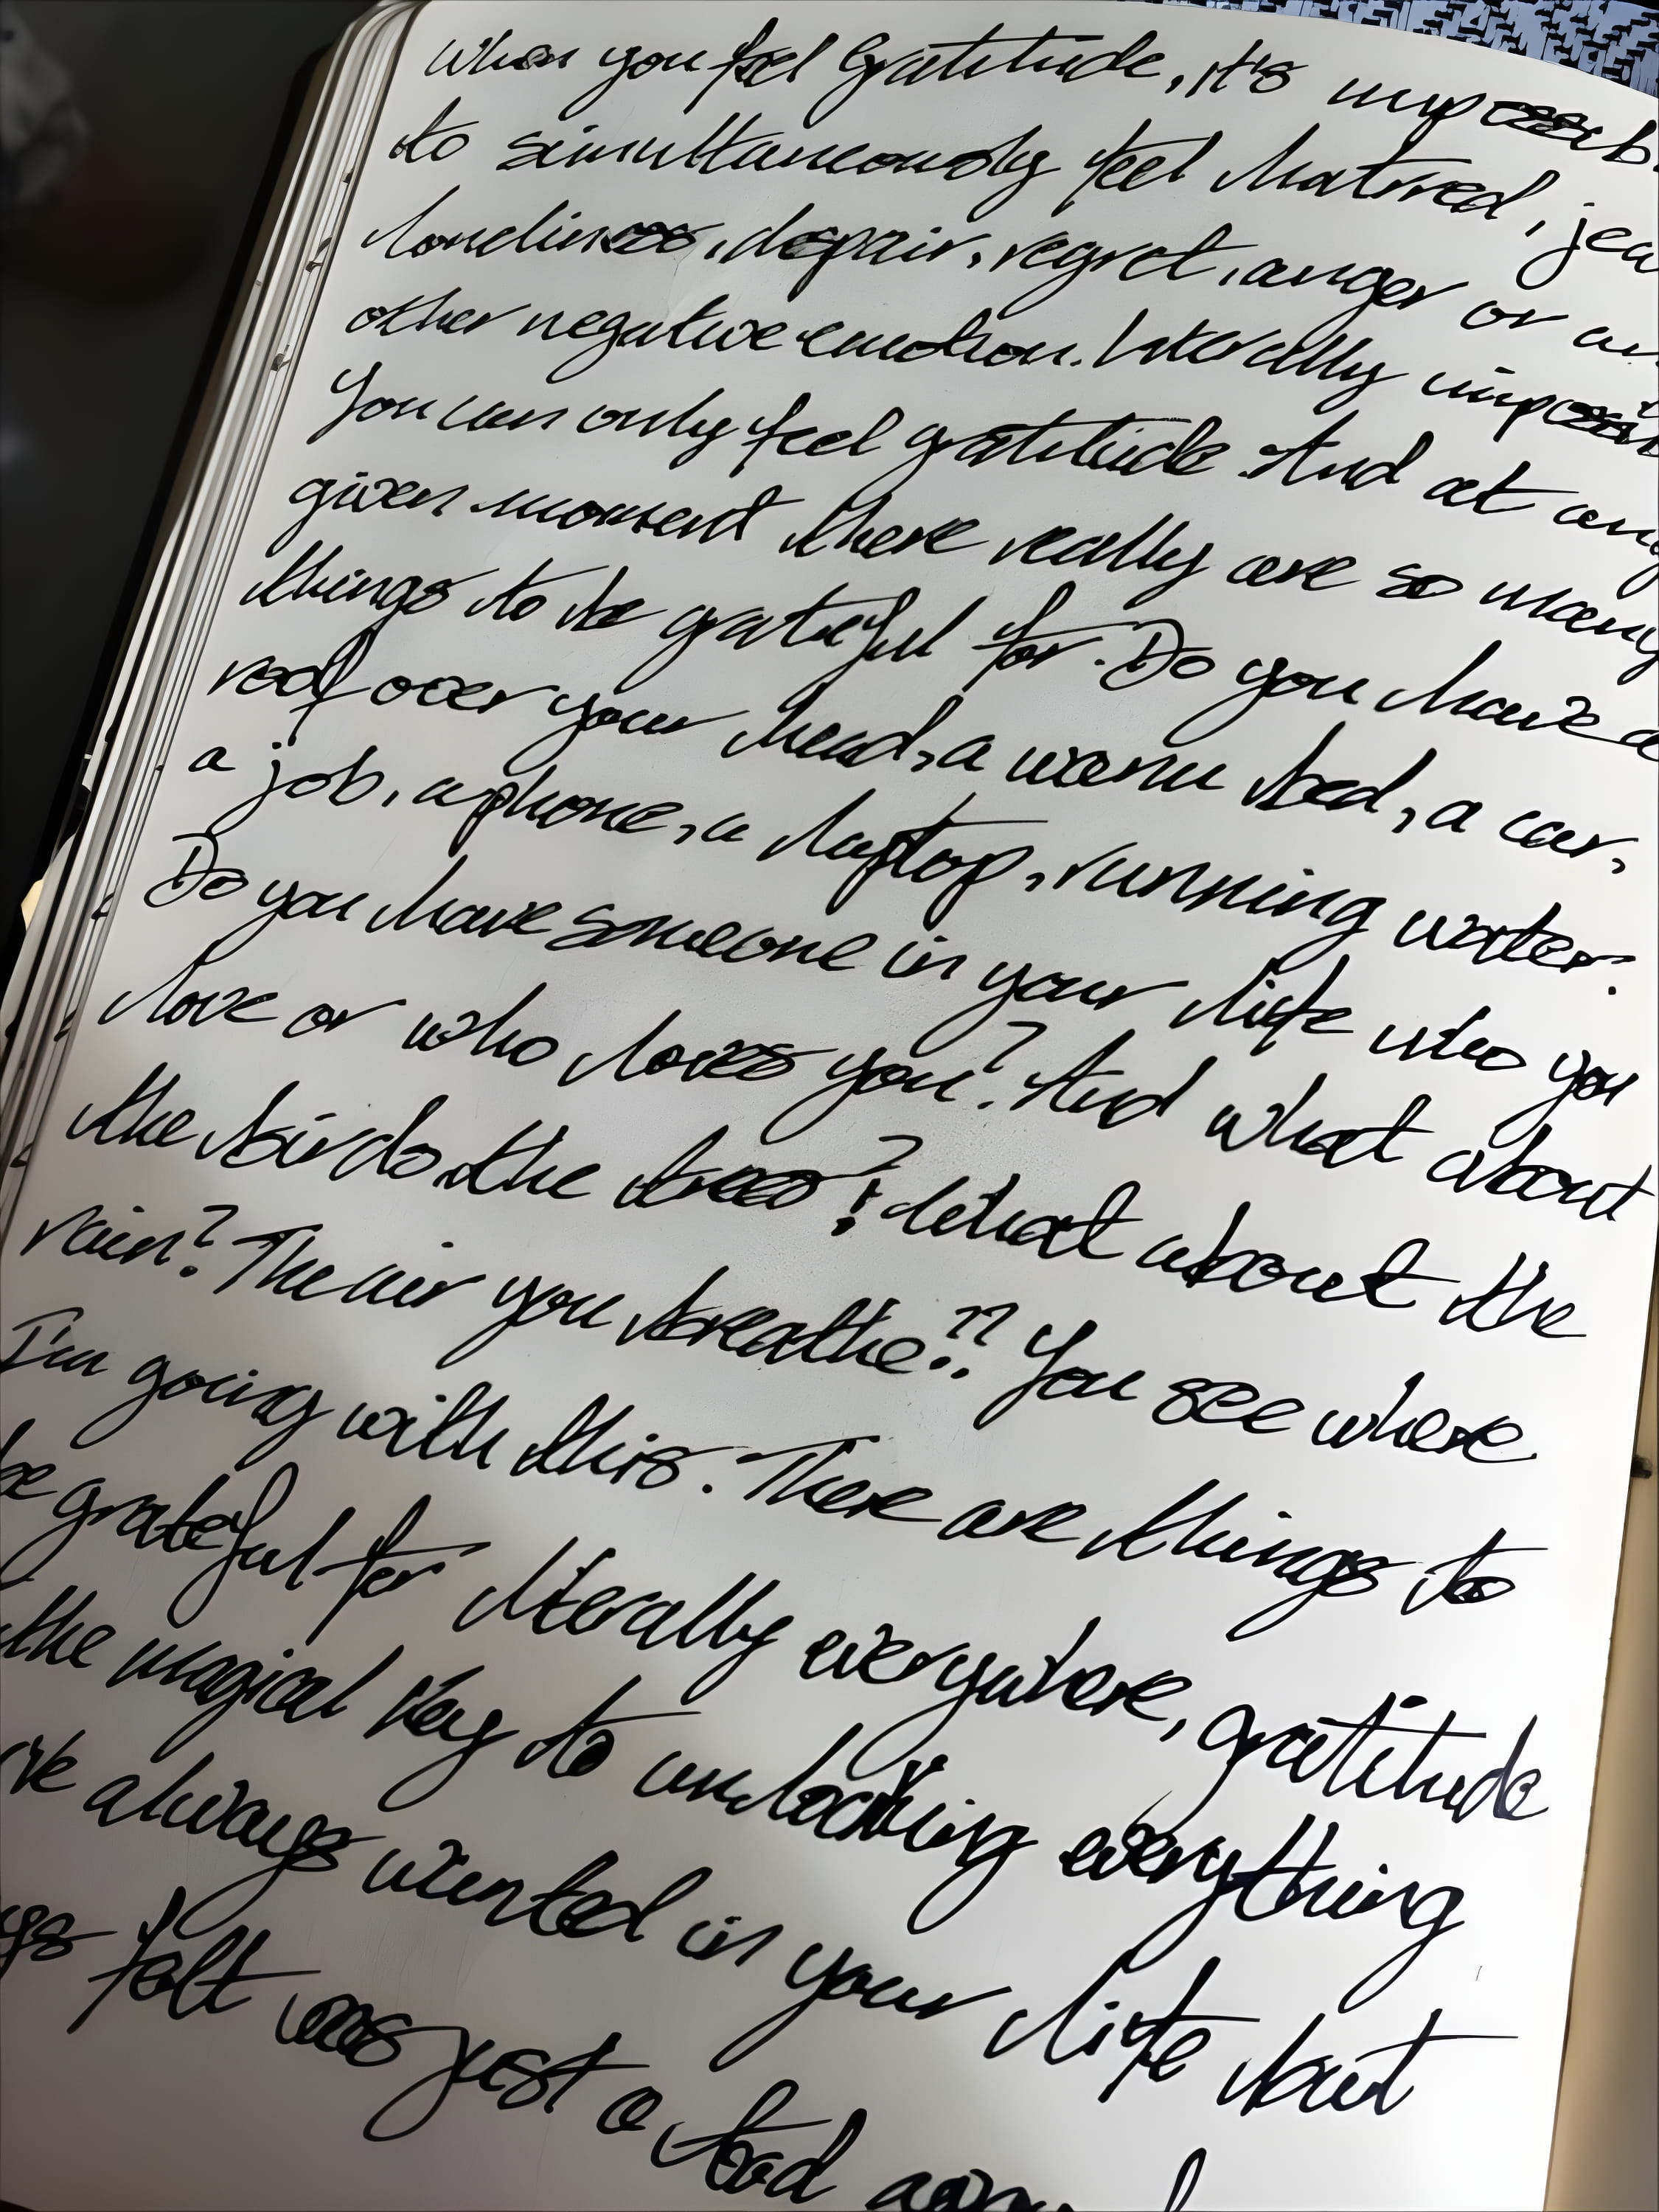 When you feel Gratitude, it's impossib
to simultaneously feel hatred, jea
loneliness, despair, regret, anger or an
other negative emotion. Literally impossib
You can only feel gratitude. And at any
given moment there really are so many
things to be grateful for. Do you have a
roof over your head, a warm bed, a car,
a job, a phone, a laptop, running water?
Do you have someone in your life who you
love or who loves you? And what about
the birds, the trees? What about the
rain? The air you breathe?? You see where
I'm going with this. There are things to
be grateful for literally everywhere, gratitude
the magical key to unlocking everything
've always wanted in your life but
ys felt was just a tad